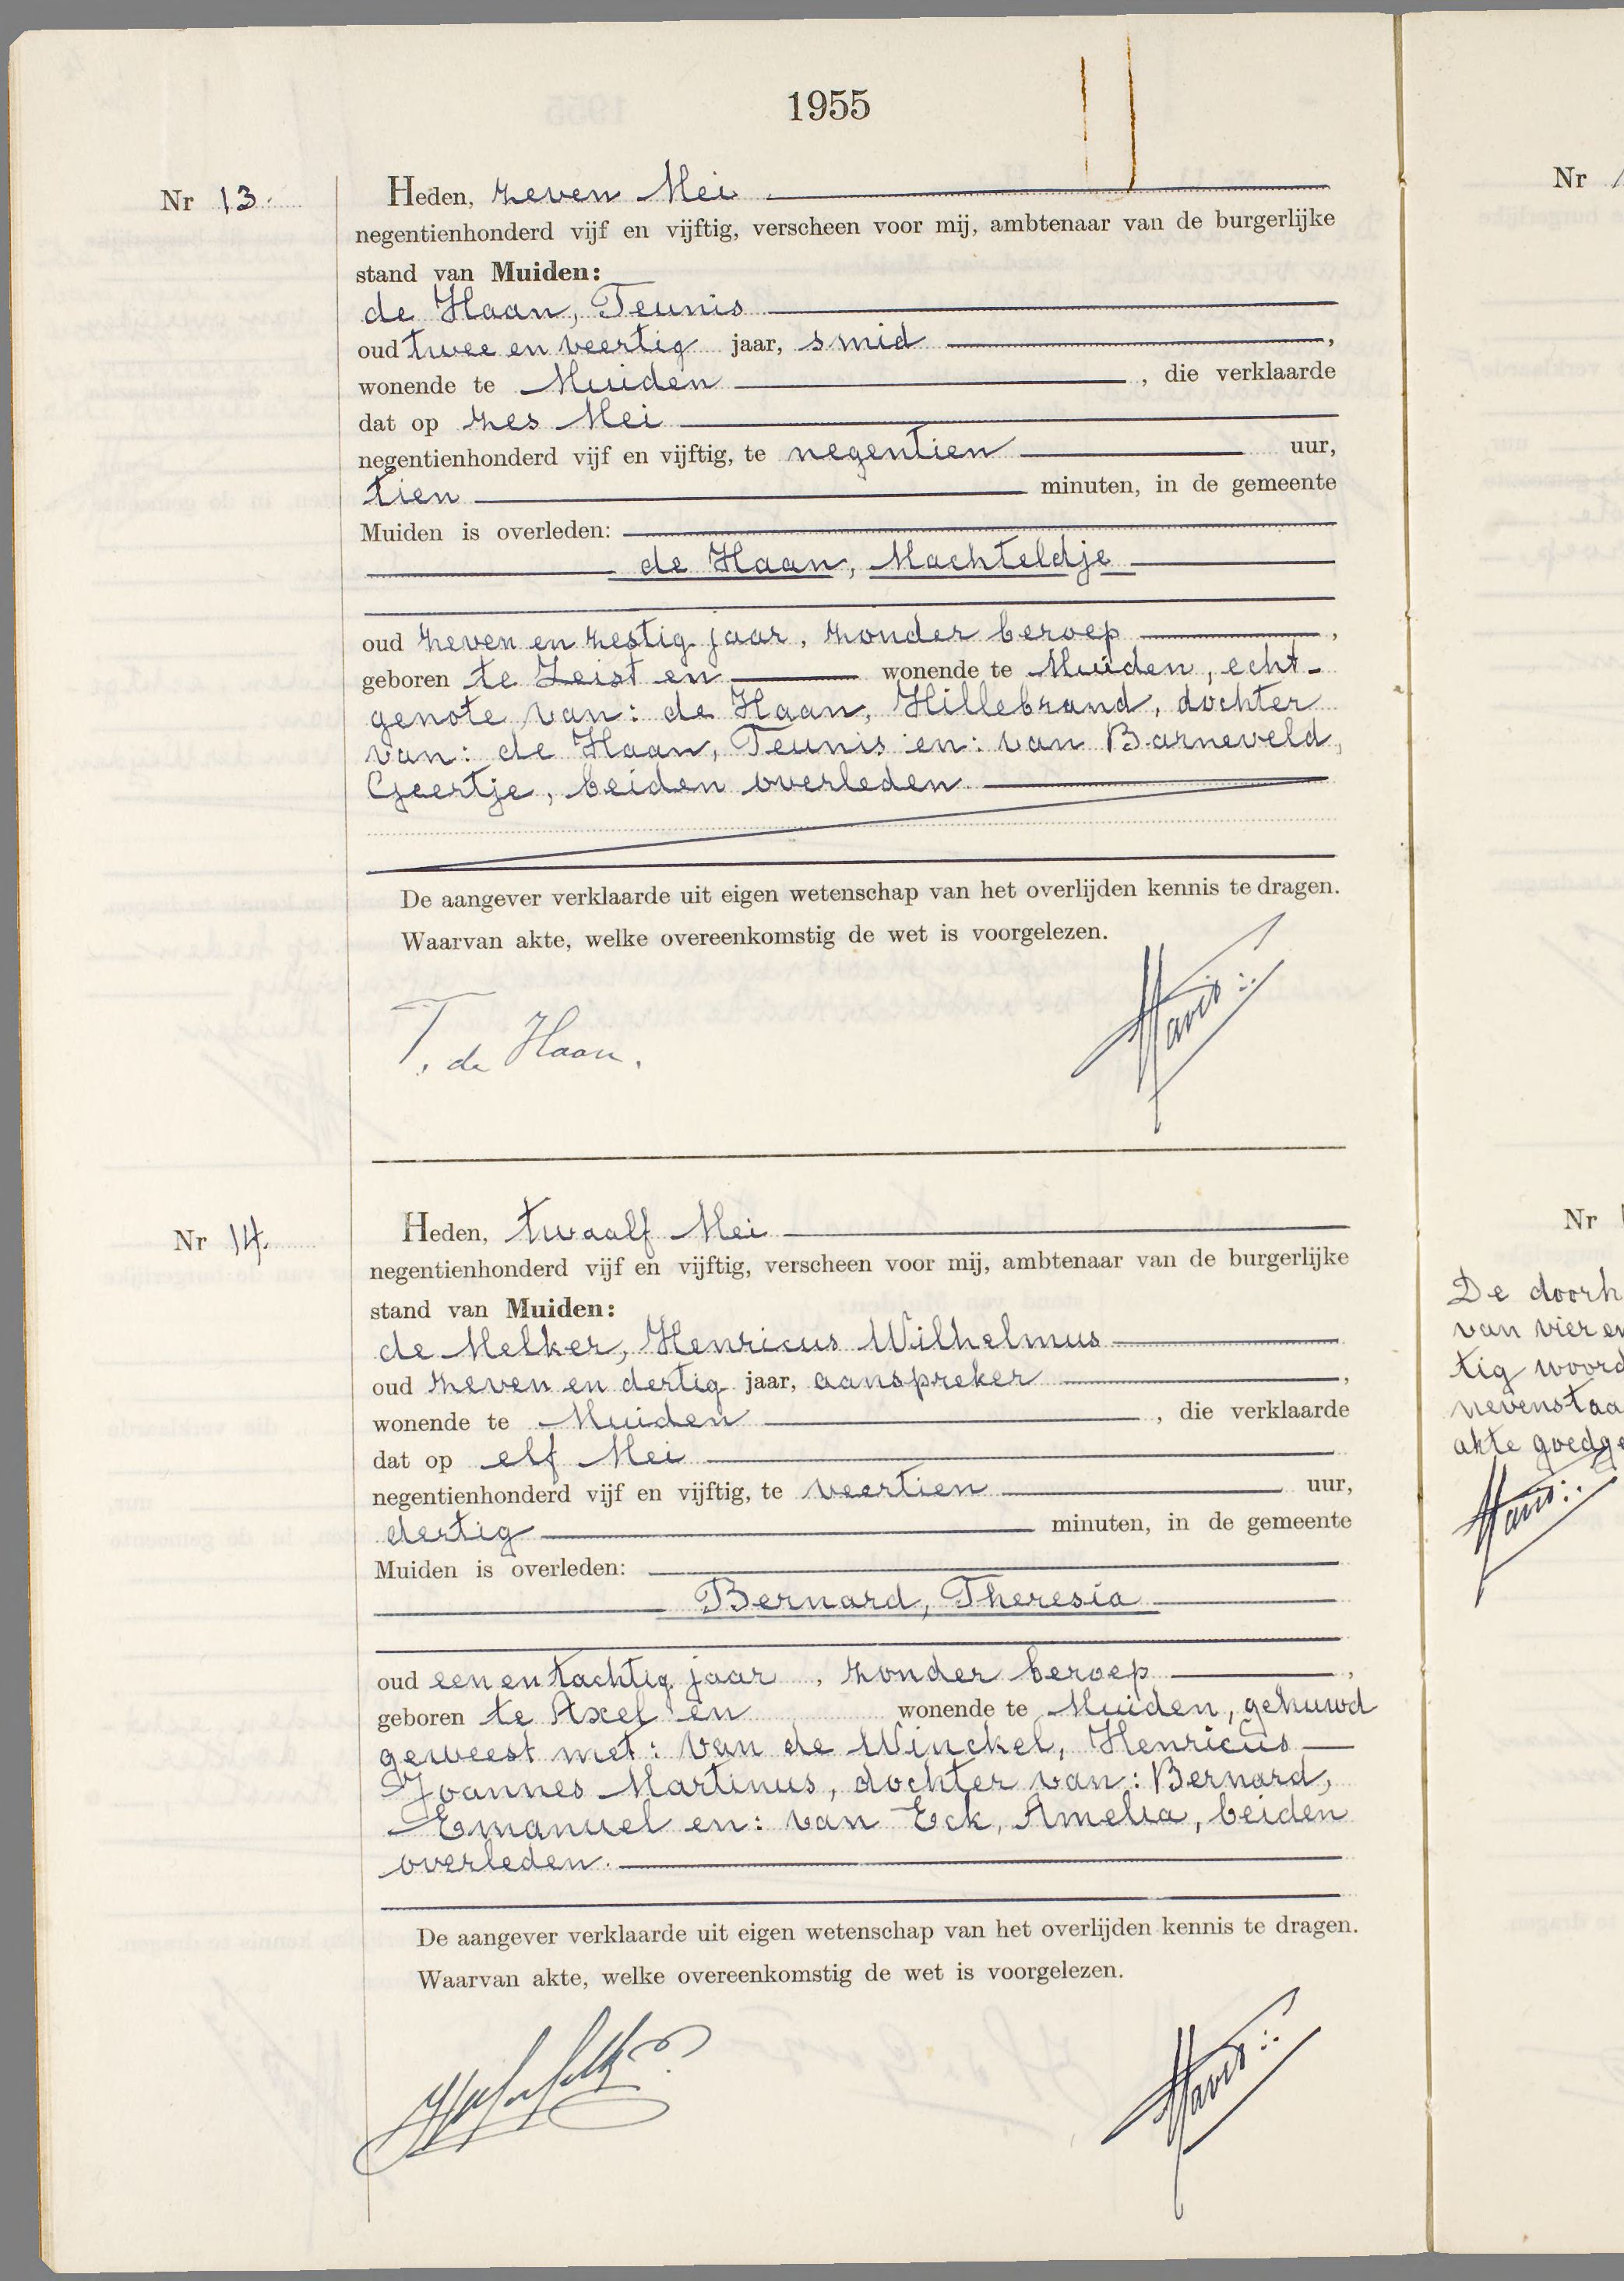 1955
Nr 13.
Heden, zeven Mei
negentienhonderd vijf en vijftig, verscheen voor mij, ambtenaar van de burgerlijke
stand van Muiden:
de Haan, Teunis
oud twee en veertig jaar, smid ,
wonende te Muiden , die verklaarde
dat op zes Mei
negentienhonderd vijf en vijftig, te negentien uur,
tien minuten, in de gemeente
Muiden is overleden:
de Haan, Machteldje
oud zeven en zestig jaar, zonder beroep ,
geboren te Zeist en wonende te Muiden, echt-
genote van: de Haan, Hillebrand, dochter
van: de Haan, Teunis en: van Barneveld,
Geertje, beiden overleden
De aangever verklaarde uit eigen wetenschap van het overlijden kennis te dragen.
Waarvan akte, welke overeenkomstig de wet is voorgelezen.
T. de Haan.
Nr 14.
Heden, twaalf Mei
negentienhonderd vijf en vijftig, verscheen voor mij, ambtenaar van de burgerlijke
stand van Muiden:
de Melker, Henricus Wilhelmus
oud zeven en dertig jaar, aanspreker ,
wonende te Muiden , die verklaarde
dat op elf Mei
negentienhonderd vijf en vijftig, te veertien uur,
dertig minuten, in de gemeente
Muiden is overleden:
Bernard, Theresia
oud een en tachtig jaar , zonder beroep ,
geboren te Axel en wonende te Muiden, gehuwd
geweest met: van de Winckel, Henricus
Joannes Martinus, dochter van: Bernard,
Emanuel en: van Eck, Amelia, beiden
overleden.
De aangever verklaarde uit eigen wetenschap van het overlijden kennis te dragen.
Waarvan akte, welke overeenkomstig de wet is voorgelezen.
Nr
Nr
De doorh
van vier en
tig woord
nevenstaa
akte goedge